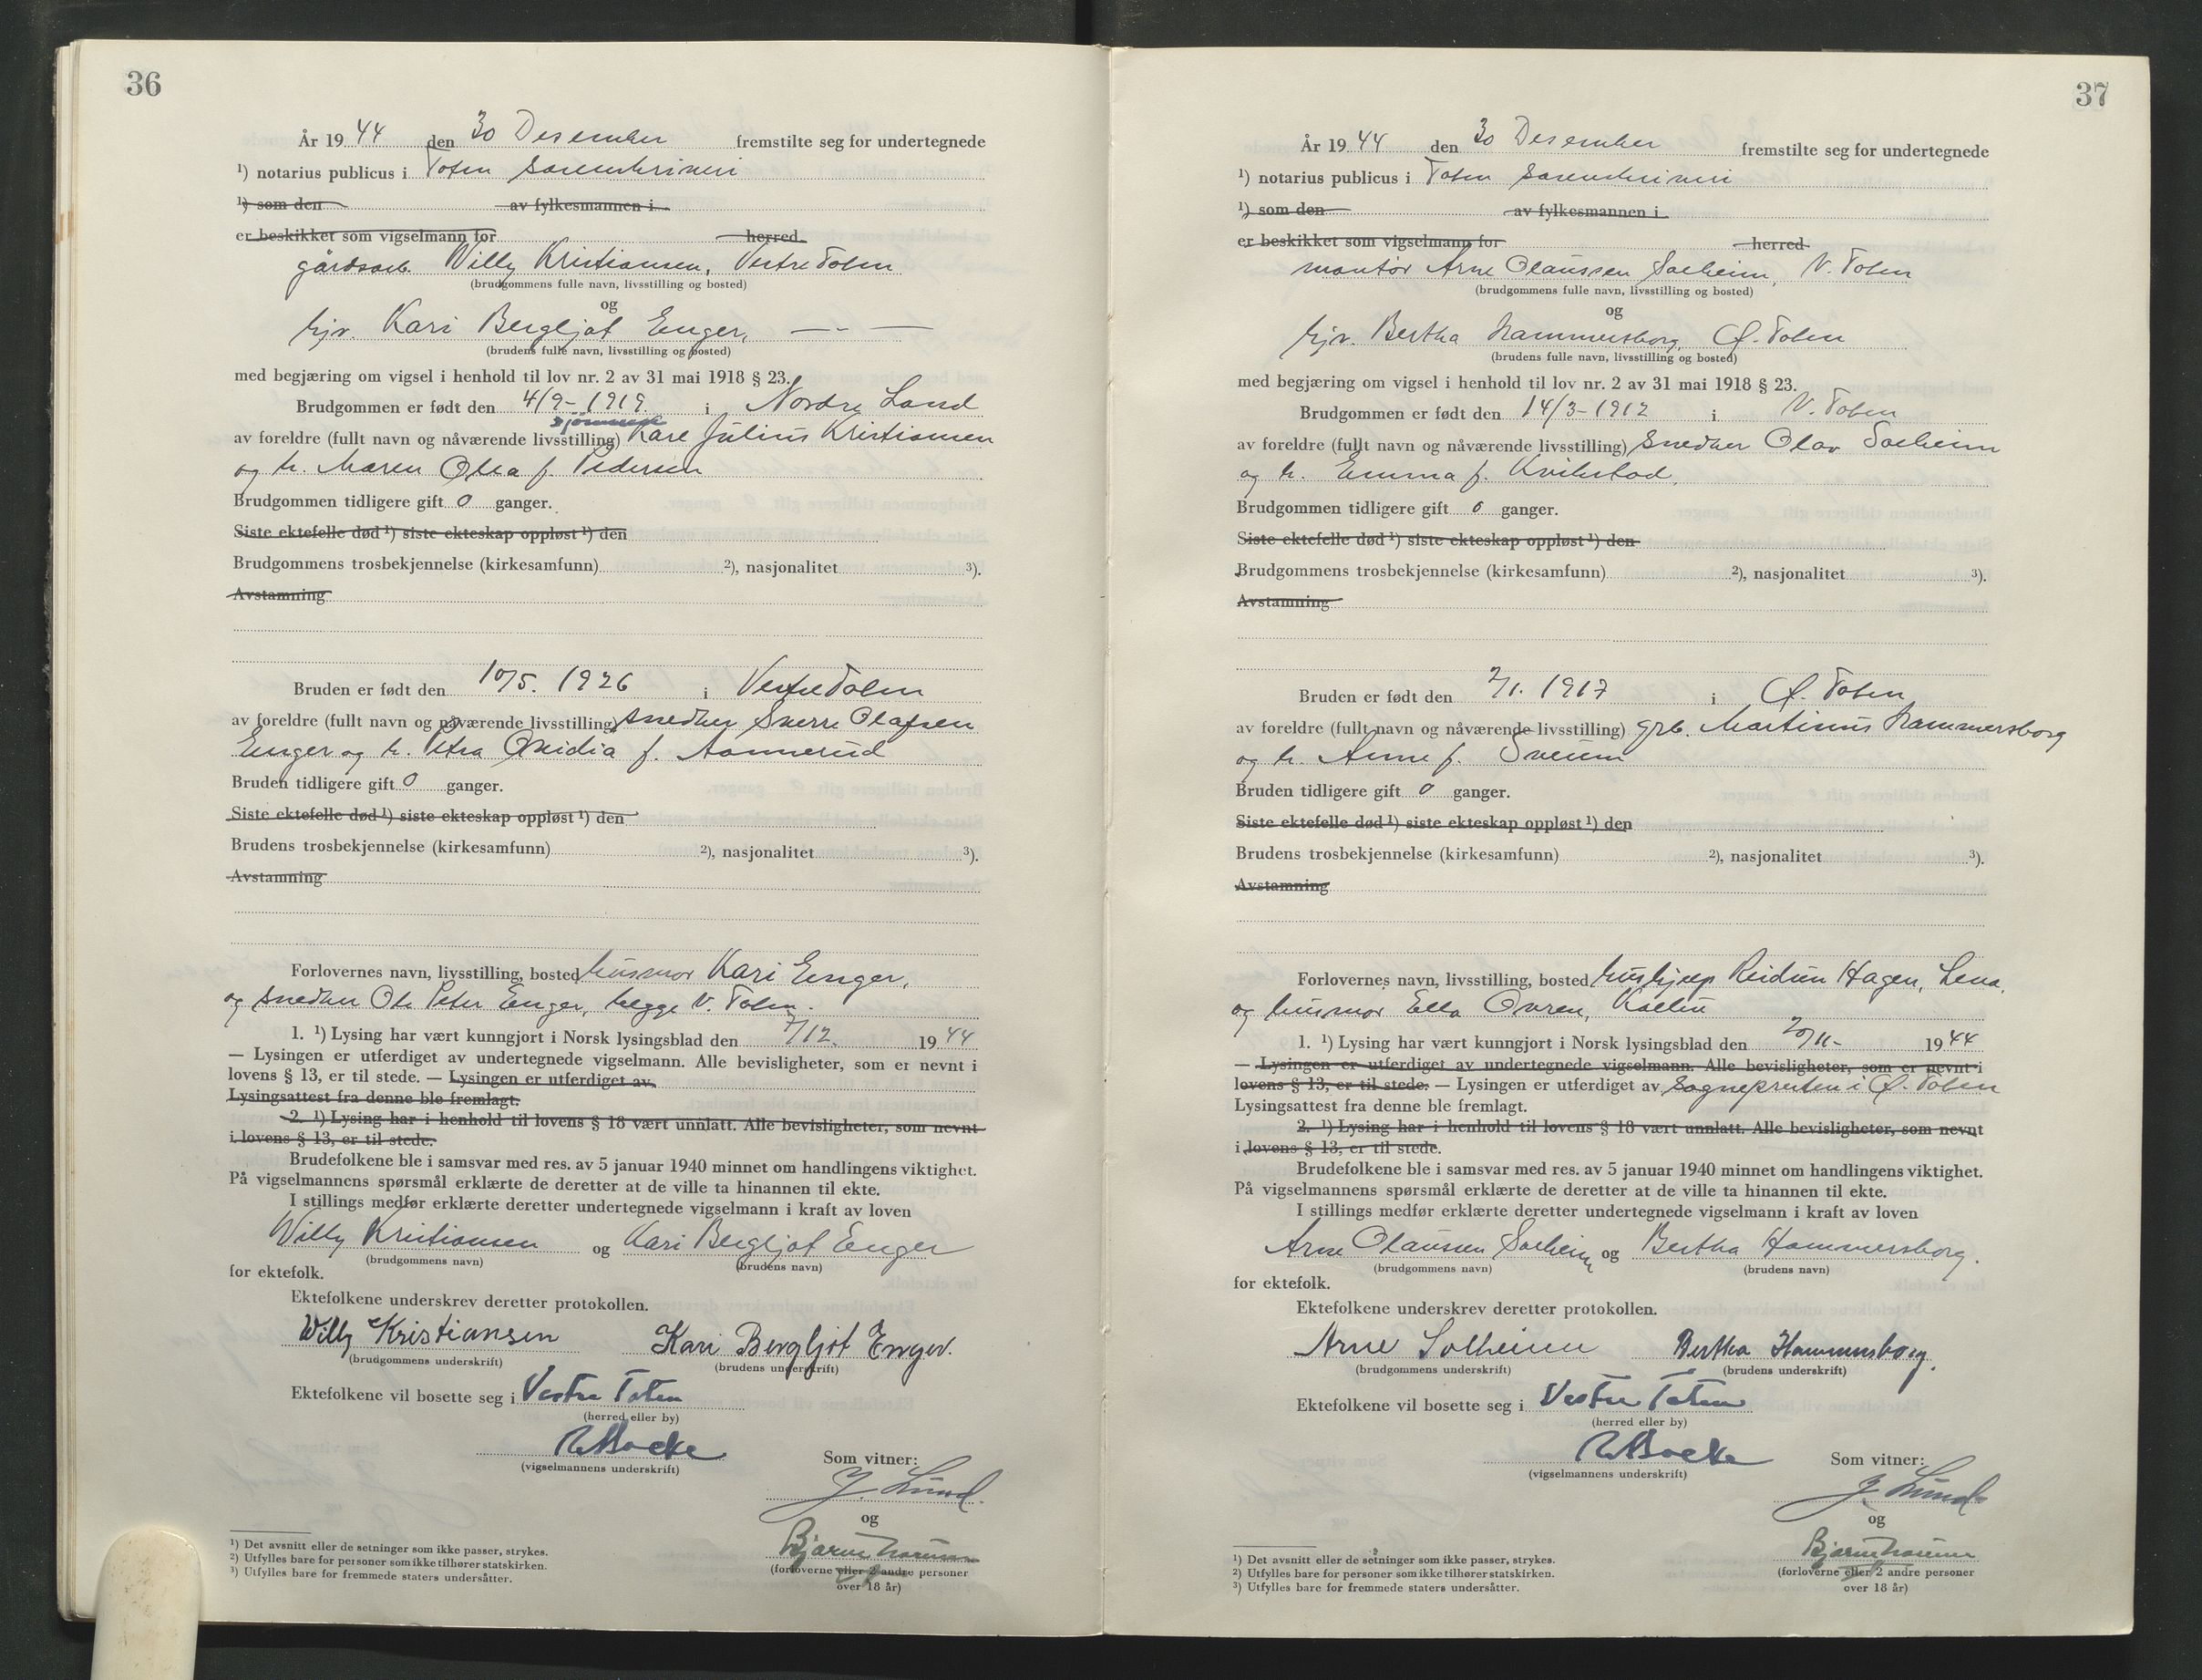 36
År 19 44 den 30 Desember fremstilte seg for undertegnede
¹) notarius publicus i Toten sorenskriveri
¹) som den av fylkesmannen i
er beskikket som vigselmann for herred
gårdsarb. Willy Kristiansen, Vestre Toten
(brudgommens fulle navn, livsstilling og bosted)
og
hjv. Kari Bergljot Enger, — - —
(brudens fulle navn, livsstilling og bosted)
med begjæring om vigsel i henhold til lov nr. 2 av 31 mai 1918 § 23.
Brudgommen er født den 4/9- 1919. i Nordre Land
av foreldre (fullt navn og nåværende livsstilling) Kare Julius Kristiansen
og h. Maren Olea f. Pedersen
Brudgommen tidligere gift 0 ganger.
Siste ektefelle død ¹) siste ekteskap oppløst ¹) den
Brudgommens trosbekjennelse (kirkesamfunn) ²), nasjonalitet ³).
Avstamning
Bruden er født den 10/5. 1926 i Vestre Toten
av foreldre (fullt navn og nåværende livsstilling) snedker Sverre Olafsen
Enger og h. Petra f. Aannerud
Bruden tidligere gift 0 ganger.
Siste ektefelle død ¹) siste ekteskap oppløst ¹) den
Brudens trosbekjennelse (kirkesamfunn) ²), nasjonalitet ³).
Avstamning
Forlovernes navn, livsstilling, bosted husmor Kari Enger,
og snedker Ole Peter Enger, begge V. Toten.
1. ¹) Lysing har vært kunngjort i Norsk lysingsblad den 7/12. 19 44
— Lysingen er utferdiget av undertegnede vigselmann. Alle bevisligheter, som er nevnt i
lovens § 13, er til stede. — Lysingen er utferdiget av
Lysingsattest fra denne ble fremlagt.
2. ¹) Lysing har i henhold til lovens § 18 vært unnlatt. Alle bevisligheter, som nevnt
i lovens § 13, er til stede.
Brudefolkene ble i samsvar med res. av 5 januar 1940 minnet om handlingens viktighet.
På vigselmannens spørsmål erklærte de deretter at de ville ta hinannen til ekte.
I stillings medfør erklærte deretter undertegnede vigselmann i kraft av loven
Willy Kristiansen og Kari Bergljot Enger
(brudgommens navn) (brudens navn)
for ektefolk.
Ektefolkene underskrev deretter protokollen.
Willy Kristiansen Kari Bergljot Enger.
(brudgommens underskrift) (brudens underskrift)
Ektefolkene vil bosette seg i Vestre Toten
(herred eller by)
(vigselmannens underskrift) Som vitner:
J. Lund.
og
Bjarne
(forloverne eller 2 andre personer
over 18 år)
¹) Det avsnitt eller de setninger som ikke passer, strykes.
²) Utfylles bare for personer som ikke tilhører statskirken.
³) Utfylles bare for fremmede staters undersåtter.
37
År 19 44 den 30 Desember fremstilte seg for undertegnede
¹) notarius publicus i Toten sorenskriveri
¹) som den av fylkesmannen i
er beskikket som vigselmann for herred
montør Arne Olaussen Solheim, V. Toten
(brudgommens fulle navn, livsstilling og bosted)
og
hjv. Bertha Hammersborg, Ø. Toten
(brudens fulle navn, livsstilling og bosted)
med begjæring om vigsel i henhold til lov nr. 2 av 31 mai 1918 § 23.
Brudgommen er født den 14/3- 1912 i V. Toten
av foreldre (fullt navn og nåværende livsstilling) snedker Olav Solheim
og h. Emma f. Kvikstad.
Brudgommen tidligere gift 0 ganger.
Siste ektefelle død ¹) siste ekteskap oppløst ¹) den
Brudgommens trosbekjennelse (kirkesamfunn) ²), nasjonalitet ³).
Avstamning
Bruden er født den 2/1. 1917 i Ø. Toten
av foreldre (fullt navn og nåværende livsstilling) grb. Martinus Hammersborg
og h. Anne f. Sveum
Bruden tidligere gift 0 ganger.
Siste ektefelle død ¹) siste ekteskap oppløst ¹) den
Brudens trosbekjennelse (kirkesamfunn) ²), nasjonalitet ³).
Avstamning
Forlovernes navn, livsstilling, bosted hushjelp Reidun Hagen, Lena,
og husmor Ella Øvren, Kolbu
1. ¹) Lysing har vært kunngjort i Norsk lysingsblad den 20/11- 19 44
— Lysingen er utferdiget av undertegnede vigselmann. Alle bevisligheter, som er nevnt i
lovens § 13, er til stede. — Lysingen er utferdiget av Sognepresten i Ø. Toten
Lysingsattest fra denne ble fremlagt.
2. ¹) Lysing har i henhold til lovens § 18 vært unnlatt. Alle bevisligheter, som nevnt
i lovens § 13, er til stede.
Brudefolkene ble i samsvar med res. av 5 januar 1940 minnet om handlingens viktighet.
På vigselmannens spørsmål erklærte de deretter at de ville ta hinannen til ekte.
I stillings medfør erklærte deretter undertegnede vigselmann i kraft av loven
Arne Olaussen Solheim og Bertha Hammersborg.
(brudgommens navn) (brudens navn)
for ektefolk.
Ektefolkene underskrev deretter protokollen.
Arne Solheim Bertha Hammersborg.
(brudgommens underskrift) (brudens underskrift)
Ektefolkene vil bosette seg i Vestre Toten
(herred eller by)
(vigselmannens underskrift) Som vitner:
J. Lund
og
Bjarne
(forloverne eller 2 andre personer
over 18 år)
¹) Det avsnitt eller de setninger som ikke passer, strykes.
²) Utfylles bare for personer som ikke tilhører statskirken.
³) Utfylles bare for fremmede staters undersåtter.